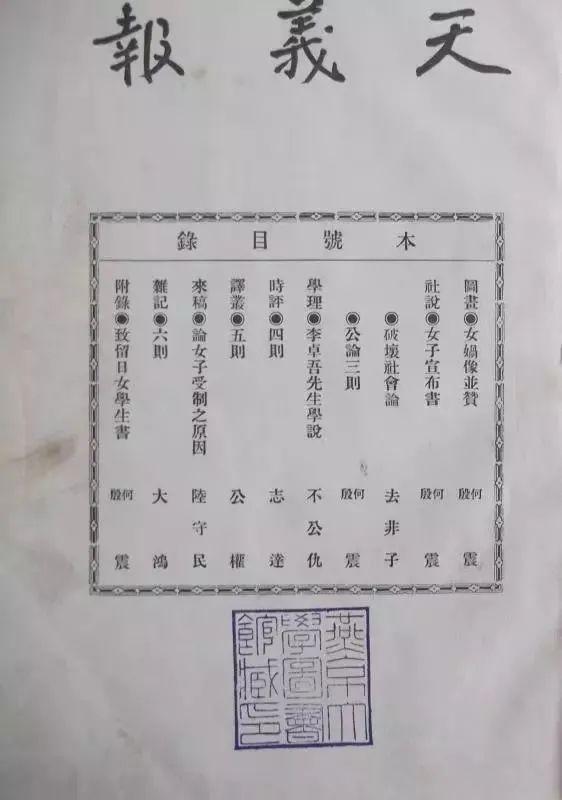 天義報
本號目錄
圖畫◉女媧像並贊 何殷震
社說◉女子宣布書 何殷震
◉破壞社會論 去非子
◉公論三則 何殷震
學理◉李卓吾先生學說 不公仇
時評◉四則 志達
譯叢◉五則 公權
來稿◉論女子受制之原因 陸守民
雜記◉六則 大鴻
附錄◉致留日女學生書 何殷震
燕京大
學圖書
館藏印